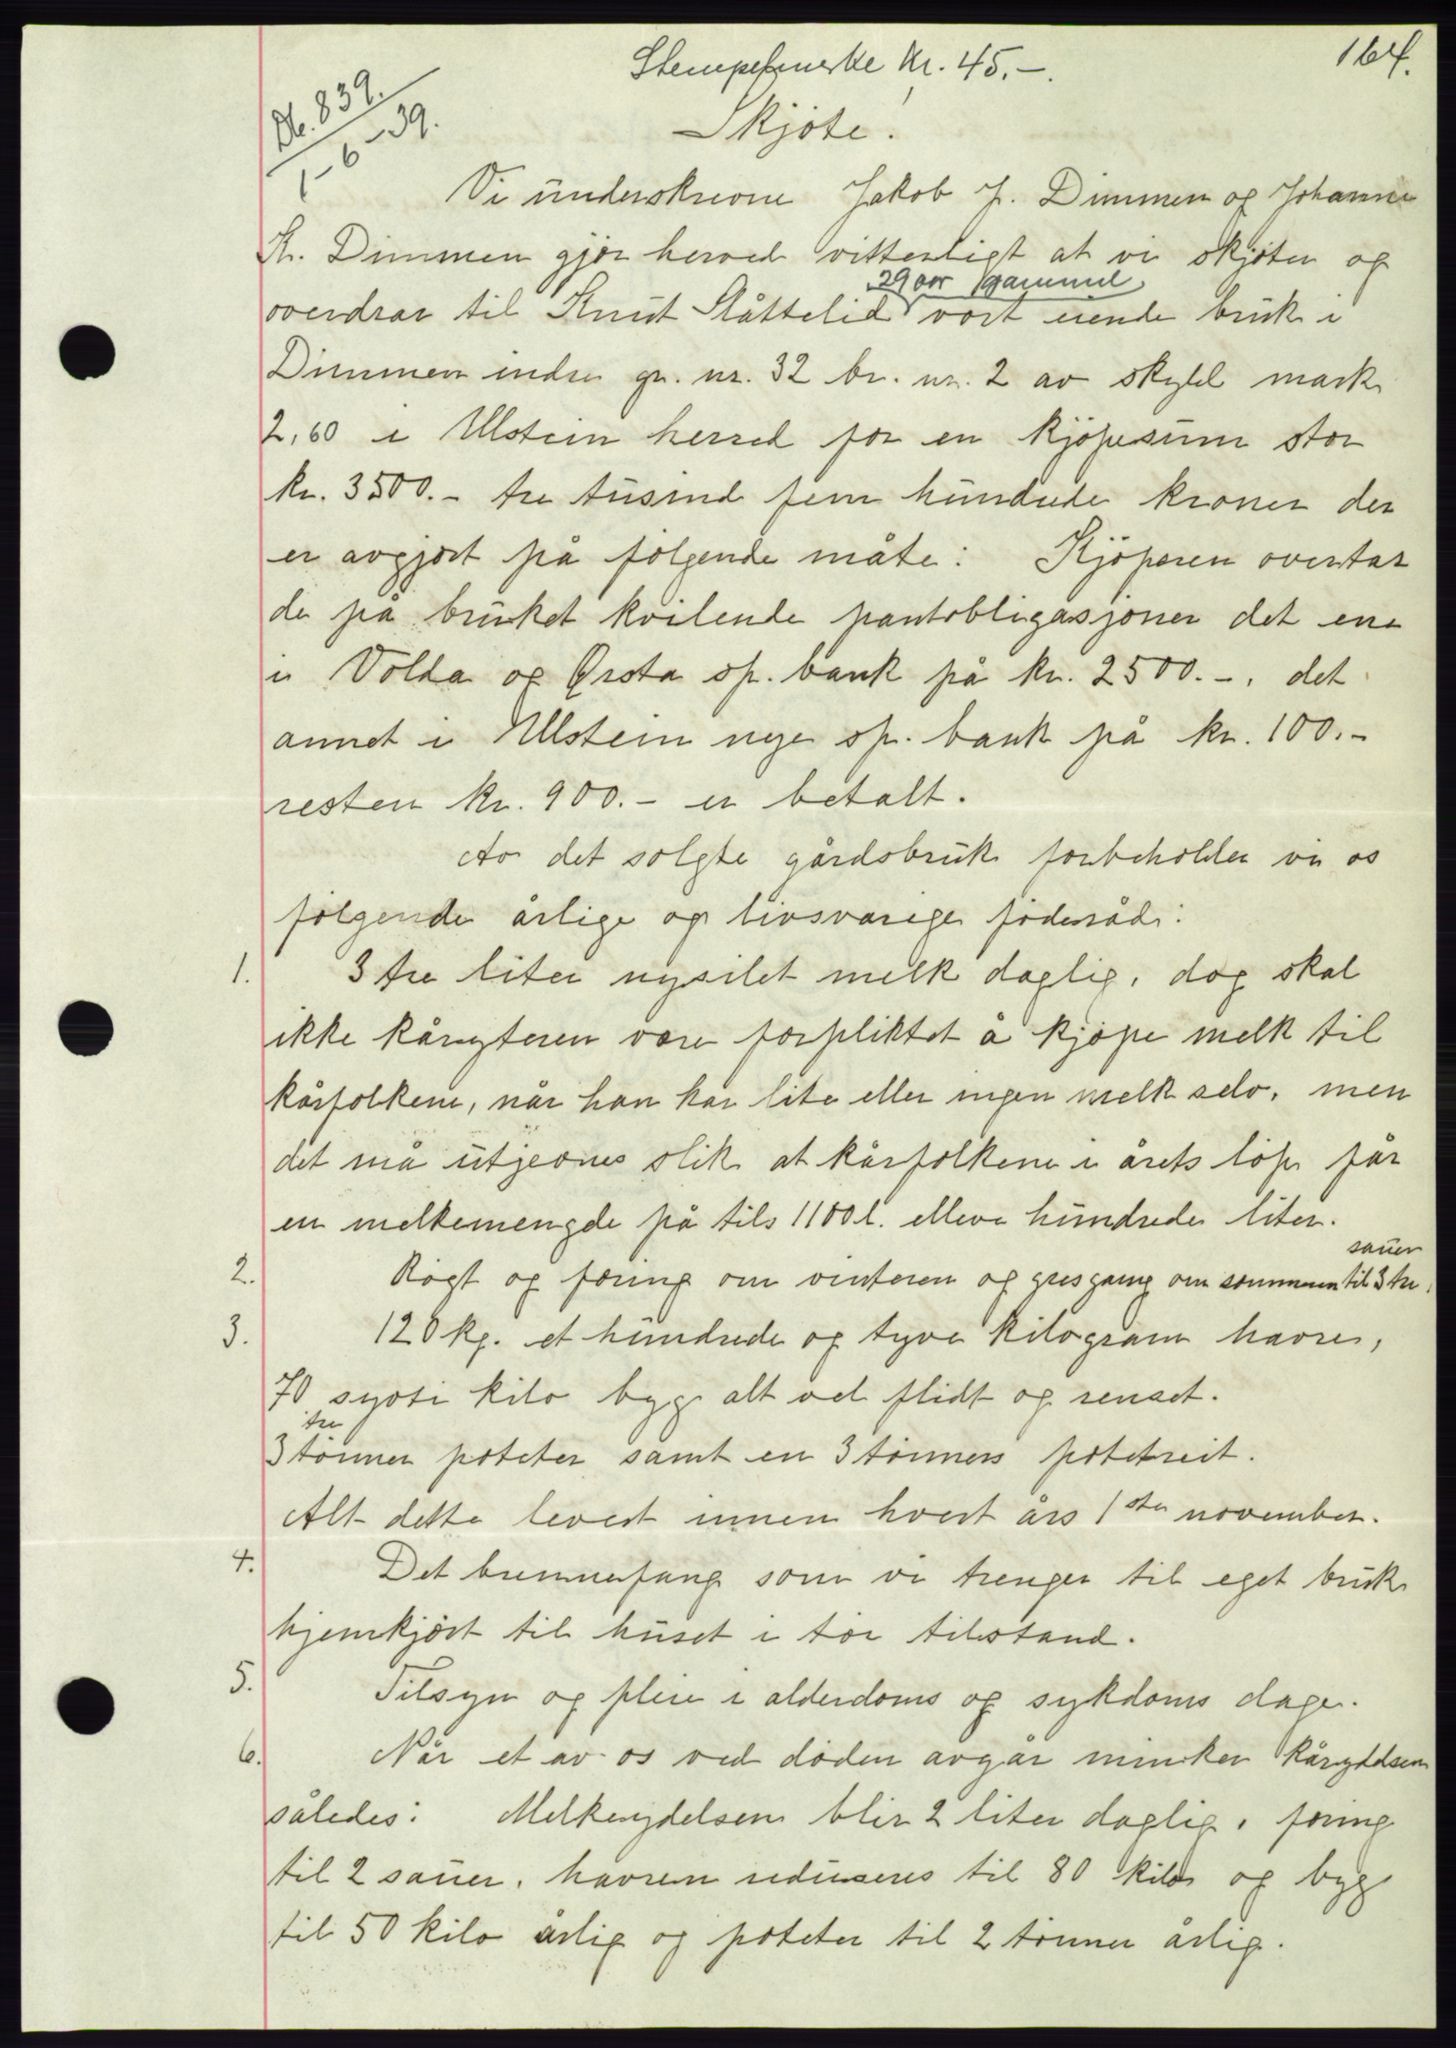 Stempelmerke Kr. 45.-
164.
Nr. 839.
1-6-39.
Skjöte.
Vi underskrevne Jakob J. Dimmen og Johanne
K. Dimmen gjör herved vitterligt at vi skjöter og
29 aar gammel
overdrar til Knut Slåttelid vort eiende bruk i
Dimmen indre gr. nr. 32 br. nr. 2 av skyld mark
2,60 i Ulstein herred for en kjöpesum stor
kr. 3500.- tre tusind fem hundrede kroner der
er avgjort på fölgende måte: Kjöperen overtar
de på bruket kvilende pantobligasjoner det ene
i Volda og Ørsta sp. bank på kr. 2500.-, det
annet i Ulstein nye sp. bank på kr. 100.-
resten kr. 900.- er betalt.
Av det solgte gårdsbruk forbeholder vi os
fölgende årlige og livsvarige föderåd:
1. 3 tre liter nysilet melk daglig, dog skal
ikke kåryteren være forpliktet å kjöpe melk til
kårfolkene, når han har lite eller ingen melk selv, men
det må utjevnes slik at kårfolkene i årets löp får
en melkemengde på tils 1100 l. elleve hundrede liter.
sauer
2. Rögt og foring om vinteren og gresgang om sommeren til 3 tre
3. 120 kg. et hundrede og tyve kilogram havre,
70 sytti kilo byg alt vel flidt og renset.
tre
3 tönner poteter samt en 3 tönners potetreit.
Alt dette levert innen hvert års 1ste november.
4. Det brennefang som vi trenger til eget bruk
hjemkjört til huset i tör tilstand.
5. Tilsyn og pleie i alderdoms og sykdoms dage.
6. Når et av os ved döden avgår minker kårytelsen
således: Melkeydelsen blir 2 liter daglig, foring
til 2 sauer, havren reduseres til 80 kilo og byg
til 50 kilo årlig og poteter til 2 tönner årlig.